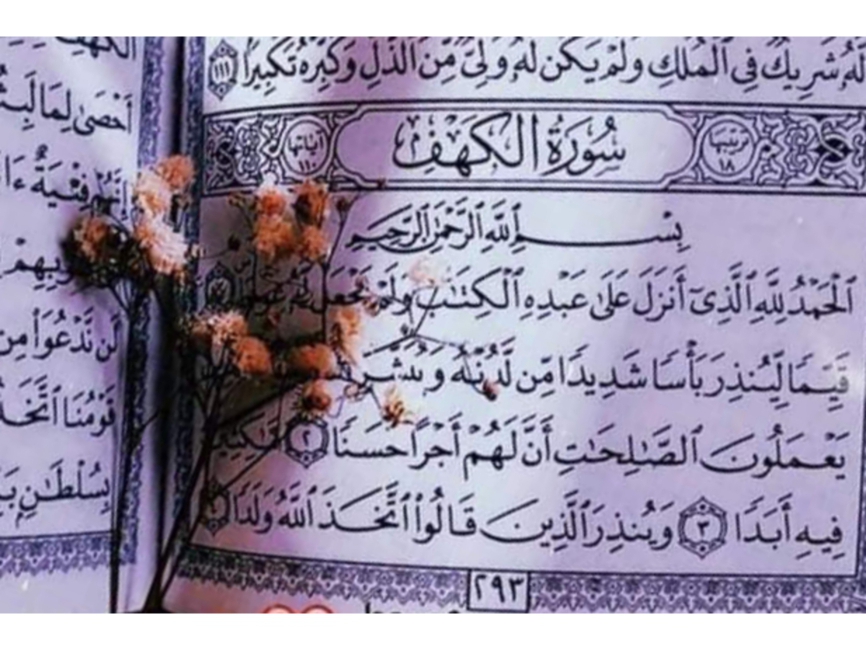 لَّهُۥ شَرِيكٌ فِي ٱلْمُلْكِ وَلَمْ يَكُن لَّهُۥ وَلِيٌّ مِّنَ ٱلذُّلِّ وَكَبِّرْهُ تَكْبِيرًا ١١١
ترتيبها ١٨ سُورَةُ الكَهْفِ آياتها ١١٠
بِسْمِ ٱللَّهِ ٱلرَّحْمَٰنِ ٱلرَّحِيمِ
ٱلْحَمْدُ لِلَّهِ ٱلَّذِىٓ أَنزَلَ عَلَىٰ عَبْدِهِ ٱلْكِتَٰبَ وَلَمْ يَجْعَل لَّهُۥ عِوَجَاۜ
قَيِّمًا لِّيُنذِرَ بَأْسًا شَدِيدًا مِّن لَّدُنْهُ وَيُبَشِّرَ
يَعْمَلُونَ ٱلصَّٰلِحَٰتِ أَنَّ لَهُمْ أَجْرًا حَسَنًا ٢ مَّٰكِثِينَ
فِيهِ أَبَدًا ٣ وَيُنذِرَ ٱلَّذِينَ قَالُوا۟ ٱتَّخَذَ ٱللَّهُ وَلَدًا
٢٩٣
الكهف
أَحْصَىٰ لِمَا لَبِثُ
إِنَّهُمْ فِتْيَةٌ ءَا
وبِهِمْ
لَن نَّدْعُوَا۟ مِن
قَوْمُنَا ٱتَّخَذُ
بِسُلْطَٰنٍۭ بَ